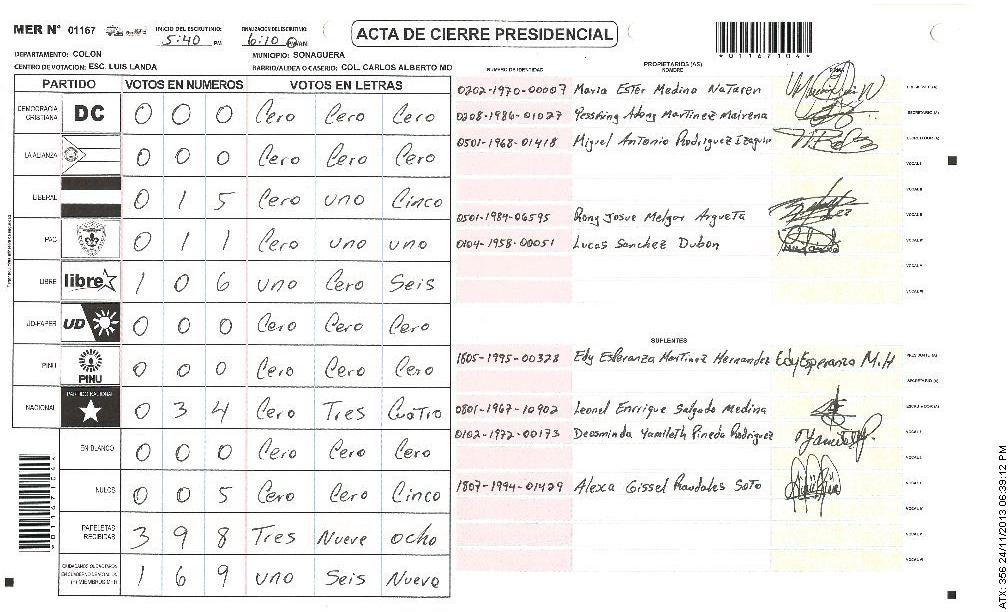 MER Nº 01167 INICIO DEL ESCRUTINIO: 5:40 PM FINALIZACION DEL ESCRUTINIO: 6:10 PM/AM. ACTA DE CIERRE PRESIDENCIAL
*01167104*
DEPARTAMENTO: COLON MUNICIPIO: SONAGUERA
CENTRO DE VOTACION: ESC. LUIS LANDA BARRIO/ALDEA O CASERIO: COL. CARLOS ALBERTO MO
PARTIDO VOTOS EN NUMEROS VOTOS EN LETRAS
DEMOCRACIA CRISTIANA DC 0 0 0 Cero Cero Cero
LA ALIANZA 0 0 0 Cero Cero Cero
LIBERAL 0 1 5 Cero uno Cinco
PAC 0 1 1 Cero uno uno
LIBRE libre 1 0 6 uno Cero Seis
UD-FAPER UD 0 0 0 Cero Cero Cero
PINU PINU 0 0 0 Cero Cero Cero
NACIONAL PARTIDO NACIONAL 0 3 4 Cero Tres Cuatro
EN BLANCO 0 0 0 Cero Cero Cero
NULOS 0 0 5 Cero Cero Cinco
PAPELETAS RECIBIDAS 3 9 8 Tres Nueve ocho
1 6 9 uno Seis Nueve
NUMERO DE IDENTIDAD PROPIETARIOS (AS) NOMBRE
0202-1970-00007 Maria Ester Medina Nataren
0208-1986-01027 Yessting Adony Martinez Mairena
0501-1968-01418 Miguel Antonio Rodriguez Izaguirr
0501-1984-06595 Rony Josue Melgar Argueta
0104-1958-00051 Lucas Sanchez Dubon
SUPLENTES
1805-1995-00328 Edy Esperanza Martinez Hernandez Edy Esperanza M.H
0801-1967-10902 Leonel Enrrique Salgado Medina
0102-1972-00173 Deosminda Yamileth Pineda Rodriguez
1807-1994-01429 Alexa Gissel Raudales Soto
*01167104*
ATX: 356 24/11/2013 06:39:12 PM